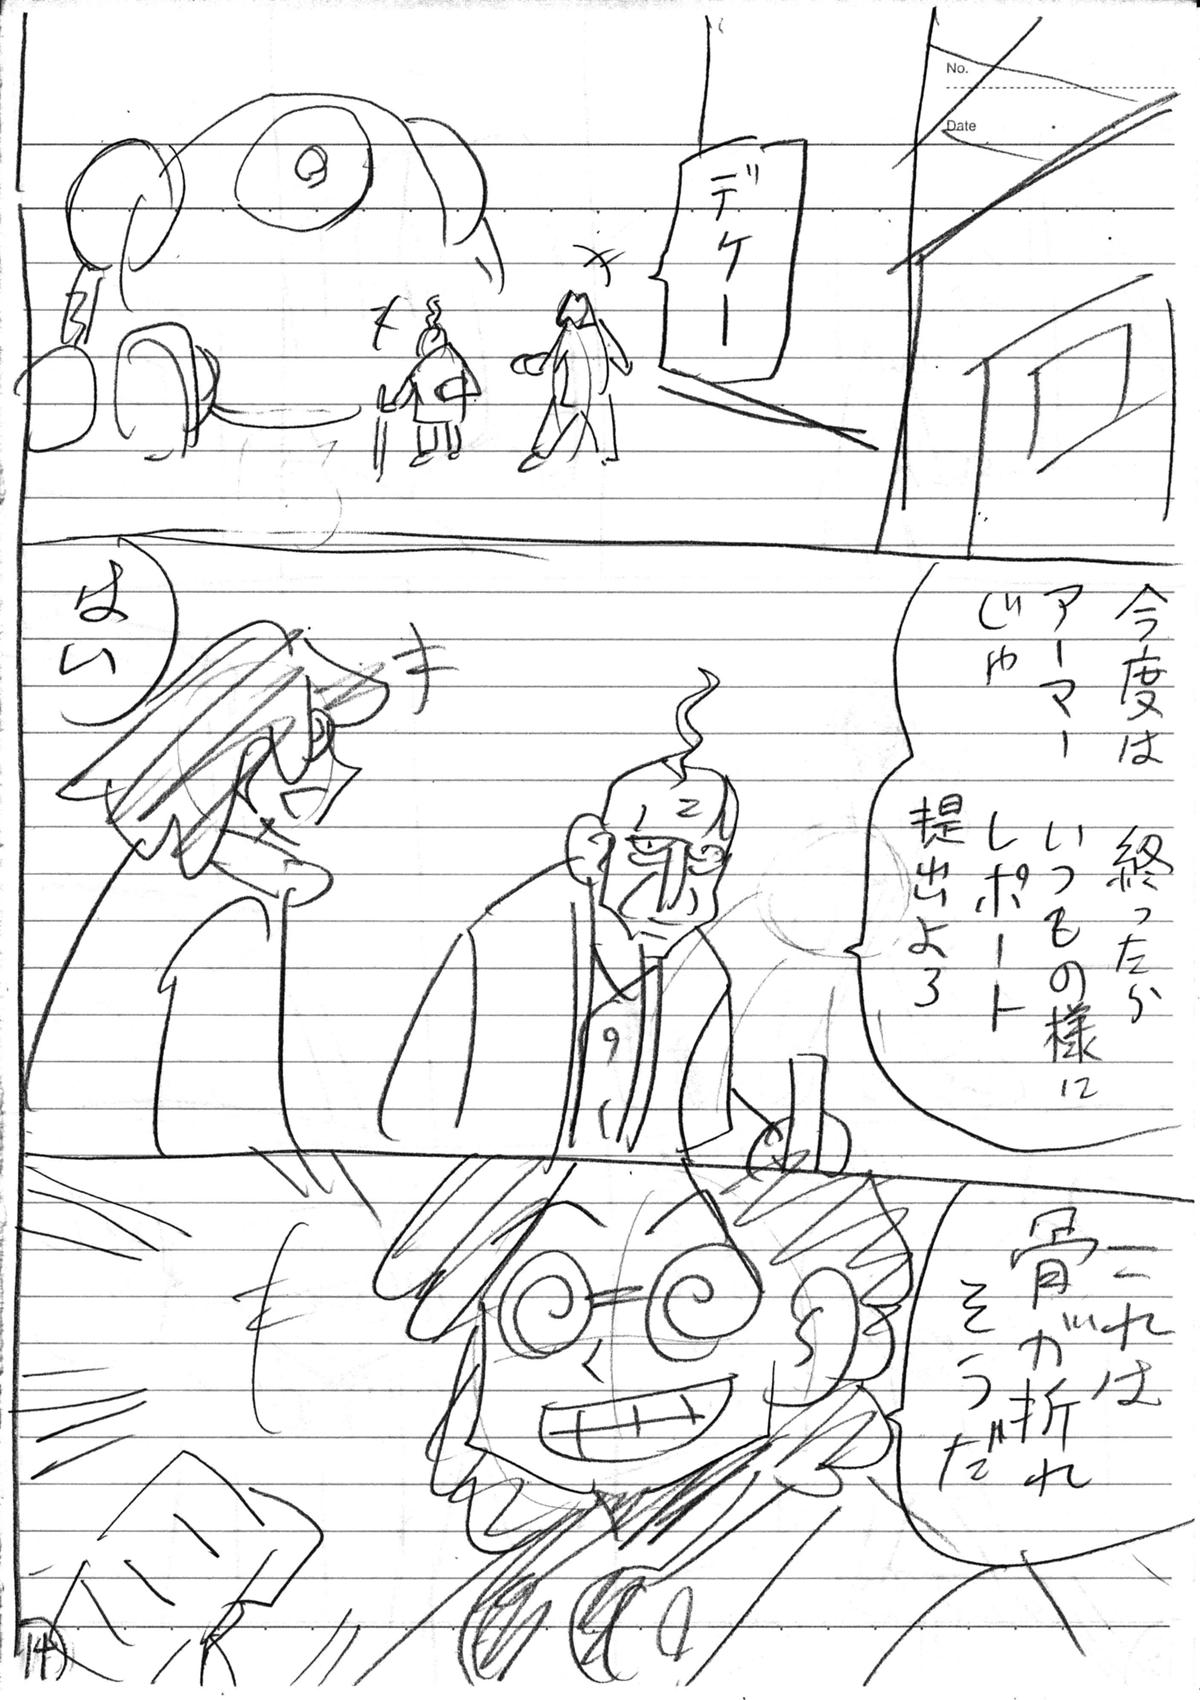 No.
Date
デケー
今度は
アーマー
じゃ
終ったら
いつもの様に
レポート
提出よろ
はい
これは
骨が折れ
そうだ
14